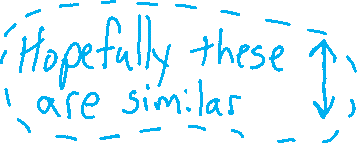 Hopefully these
are similar